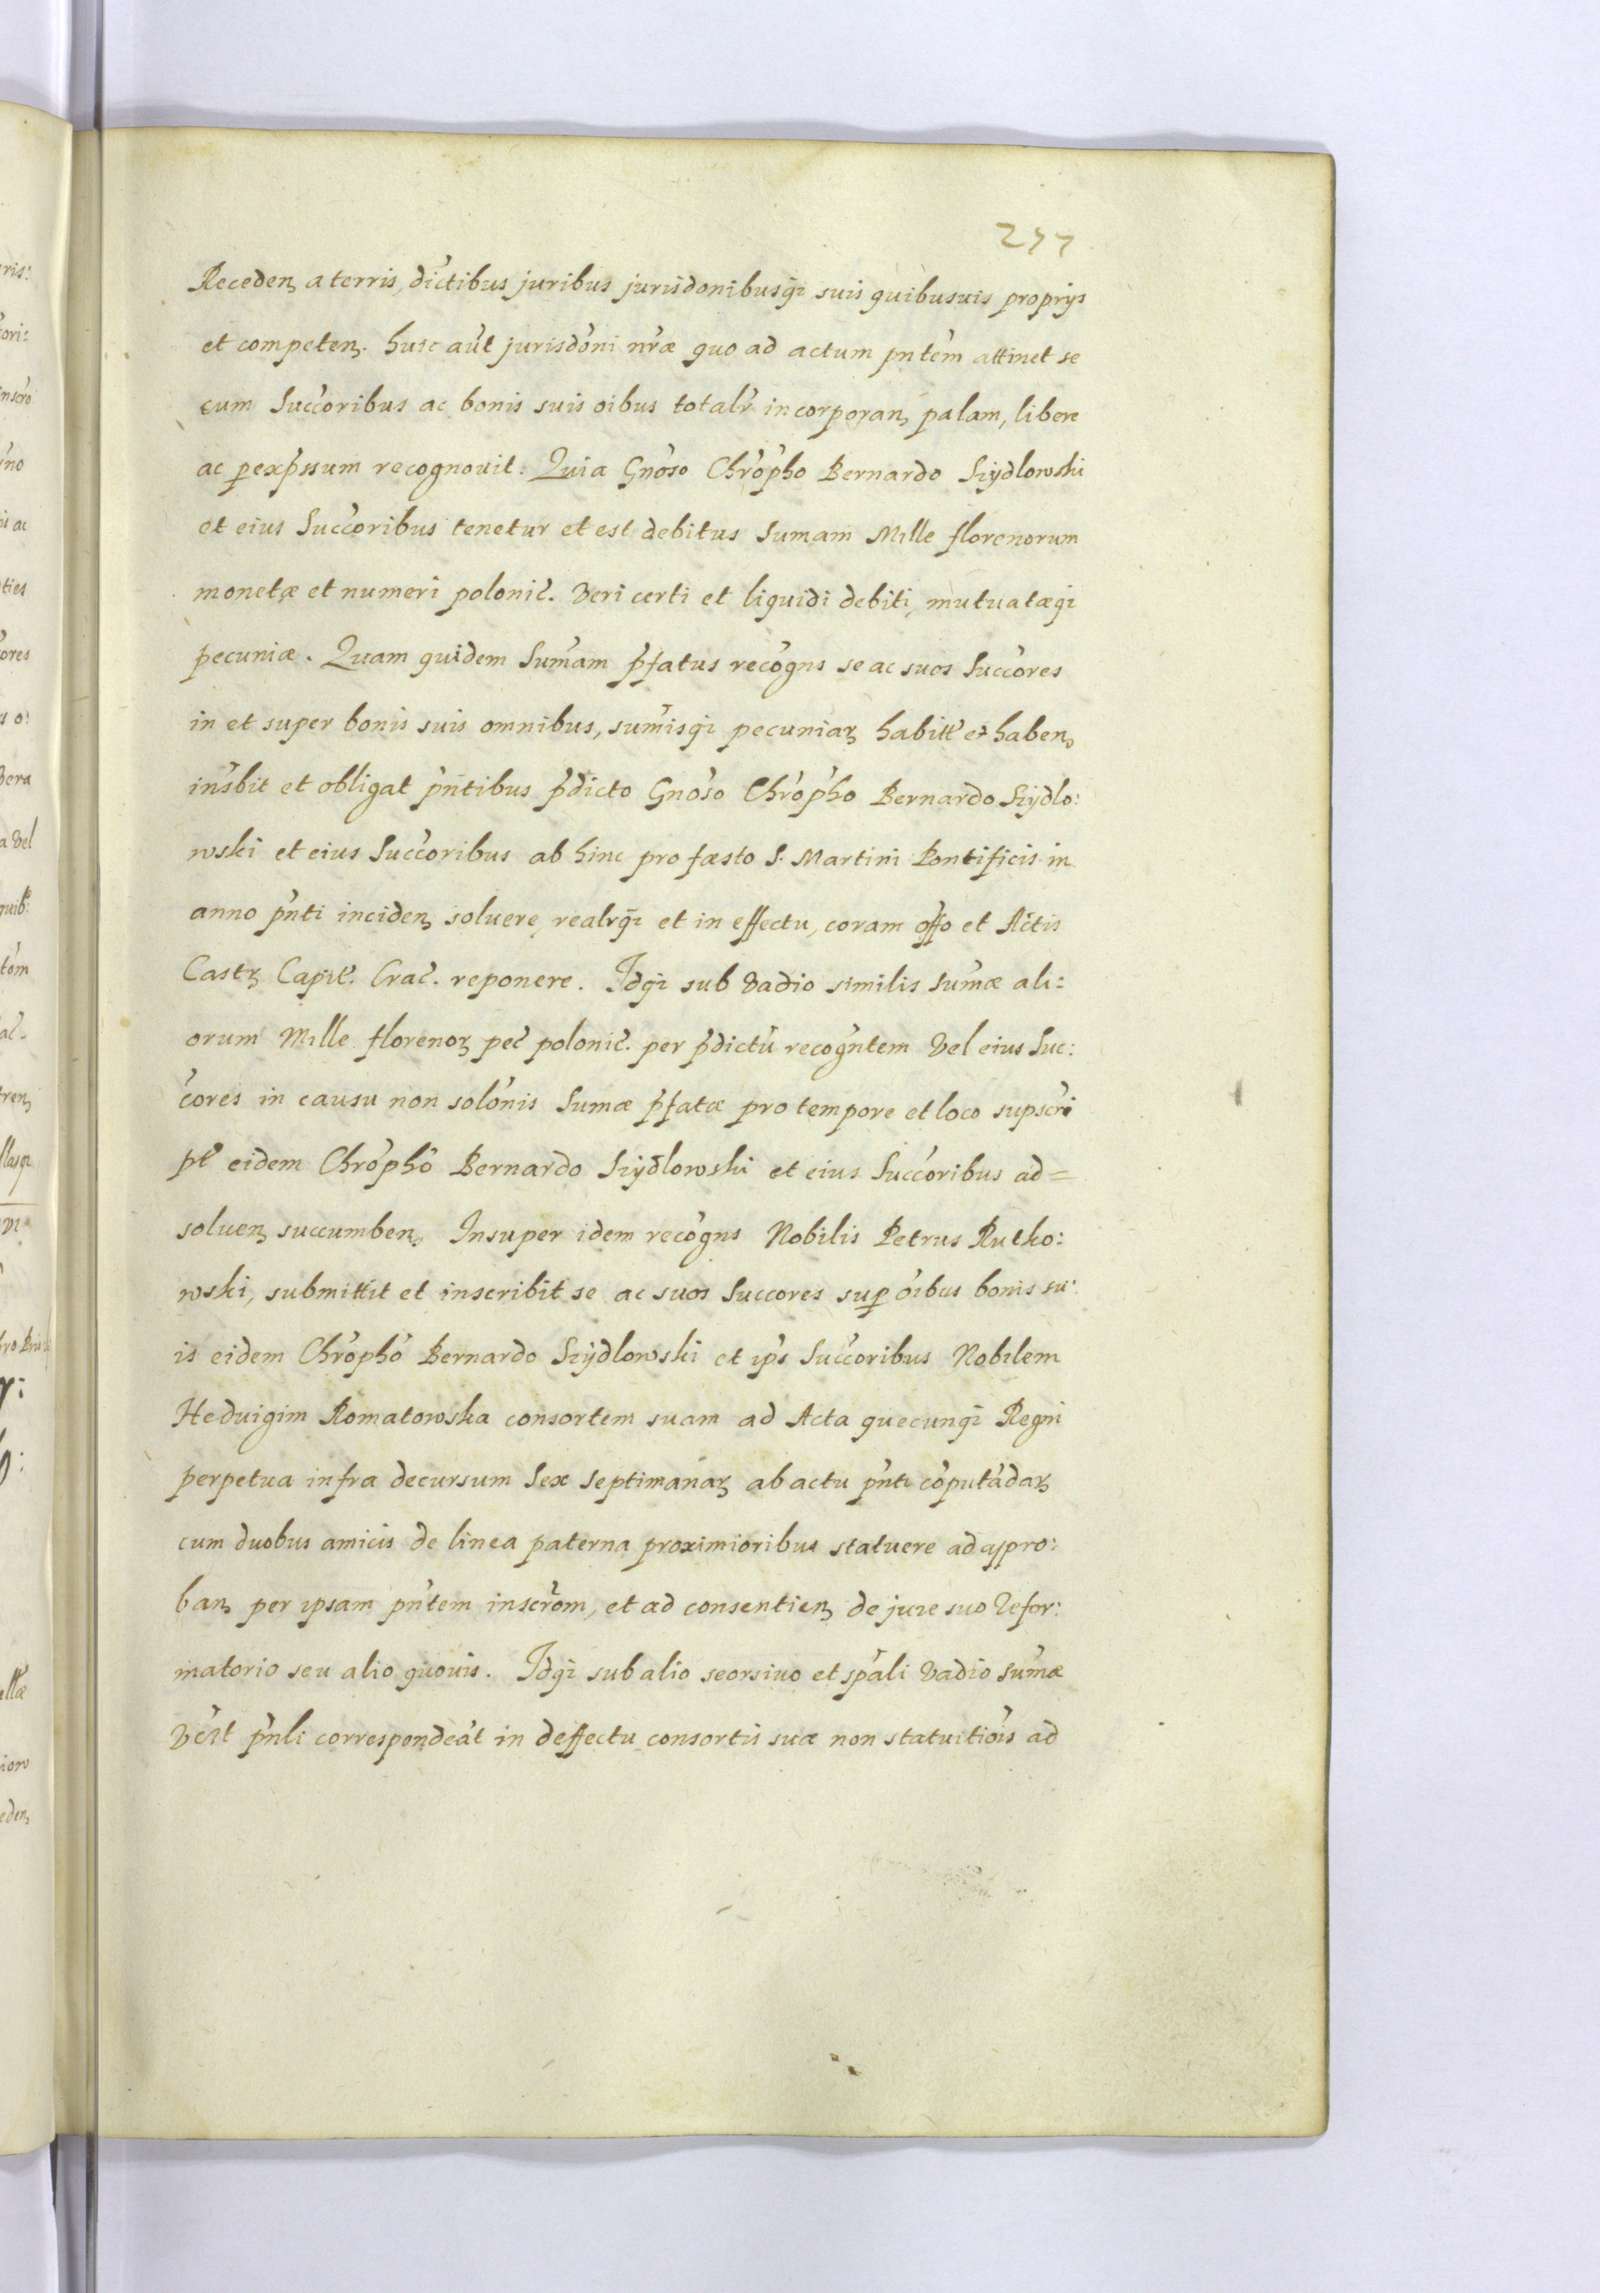 277
Receden a terris, dictibus juribus jurisdonibusq suis quibusuis proprys
et competen. huic aut jurisdoni nræ quo ad actum pntem attinet se
cum Succoribus ac bonis suis oibus totalr incorporan palam, libere
ac perexpssum recognouit: Quia Gnoso Chropho Bernardo Szydlowski
et eius Succoribus tenetur et est debitus Sumam Mille florenorum
monetæ et numeri polonic. Veri certi et liquidi debiti, mutuatæq
pecuniæ. Quam quidem Sumam pfatus recogns se ac suos Succores
in et super bonis suis omnibus, sumisq pecuniar habitt et haben
insbit et obligat pntibus pdicto Gnoso Chropho Bernardo Szydlo:
wski et eius Succoribus ab hinc pro fæsto S. Martini Pontificis in
anno pnti inciden soluere realrq et in effectu, coram offo et Actis
Castr Capit. Crac. reponere. Idq sub Vadio similis Sumæ ali:
orum Mille florenor pec polonic. per pdictu recogntem Vel eius Suc:
cores in causu non solonis Sumæ pfatæ pro tempore et loco supscri
pt eidem Chropho Bernardo Szydlowski et eius Succoribus ad=
soluen succumben. Insuper idem recogns Nobilis Petrus Rutko:
wski, submittit et inscribit se ac suos Succores sup oibus bonis su:
is eidem Chropho Bernardo Szydlowski et ips Succoribus Nobilem
Heduigim Romatowska consortem suam ad Acta quecunq Regni
perpetua infra decursum Sex Septimanar ab actu pnti coputadar
cum duobus amicis de linea paterna proximioribus statuere ad appro:
ban per ipsam pntem inscrom, et ad consentien de jure suo Refor:
matorio seu alio quouis. Idq sub alio seorsiuo et spali Vadio sumæ
pnli correspondeat in deffectu consortis suæ non statuitiois ad